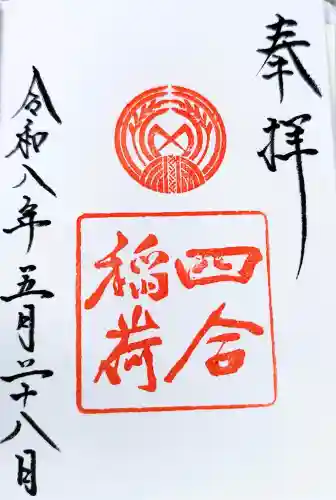 奉拝
四合
稲荷
令和八年五月二十八日